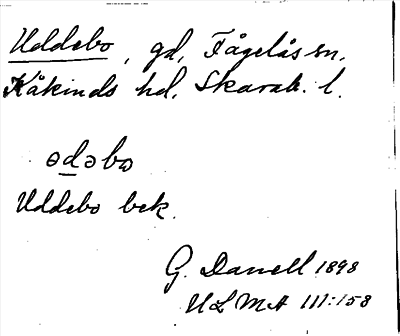 Uddebo, gd, Fågelås sn.
Kåkinds hd. Skarab. l.
ədəbω
Uddebo bek.
G. Danell 1898
ULMA 111:158